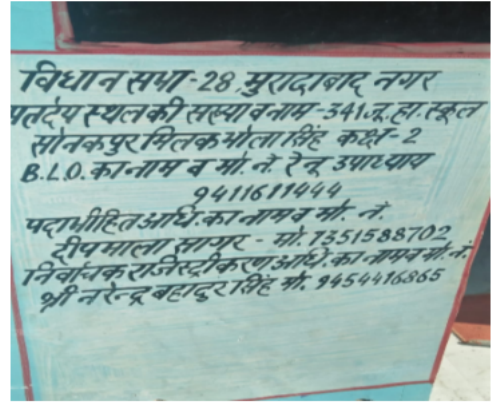 विधान सभा-28, मुरादाबाद नगर
मतदेय स्थल की संख्या व नाम-341 जू. हा. स्कूल
सोनकपुर मिलक भोला सिंह कक्ष-2
B.L.O. का नाम व मो. नं. रेनू उपाध्याय
9411611444
पदाभीहित अधि. का नाम व मो. नं.
दीपमाला सागर - मो. 7351588702
निर्वाचक राजिस्ट्रीकरण अधि. का नाम व मो. नं.
श्री नरेन्द्र बहादुर सिंह मो. 9454416865